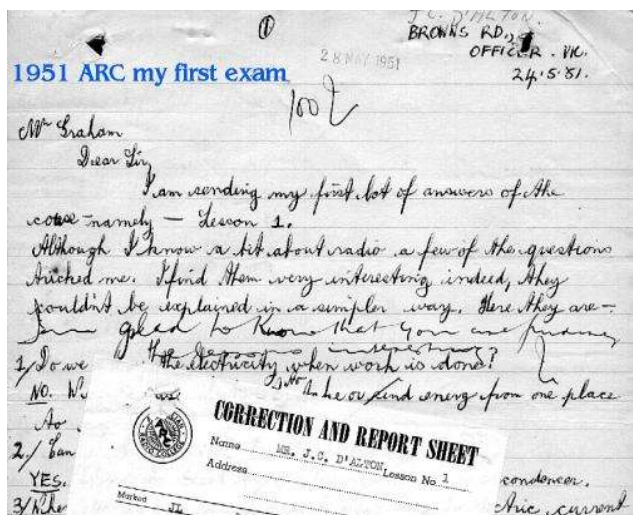 ①
J.C. D'ALTON.
BROWNS RD.,
OFFICER. VIC.
28 MAY 1951
24.5.51.
1951 ARC my first exam
100%
Mr Graham
Dear Sir,
I am sending my first lot of answers of the
course - namely - Lesson 1.
Although I know a bit about radio a few of the questions
tricked me. I find them very interesting indeed, they
couldn't be explained in a simpler way. Here they are:-
glad to know that you are finding
the lessons interesting
1/ Do we the electricity when work is done?
NO. energy from one place
to
2./ Can
YES. condenser.
3/ Whe current
CORRECTION AND REPORT SHEET
Name MR. J.C. D'ALTON Lesson No. 1
Address
Marked JL